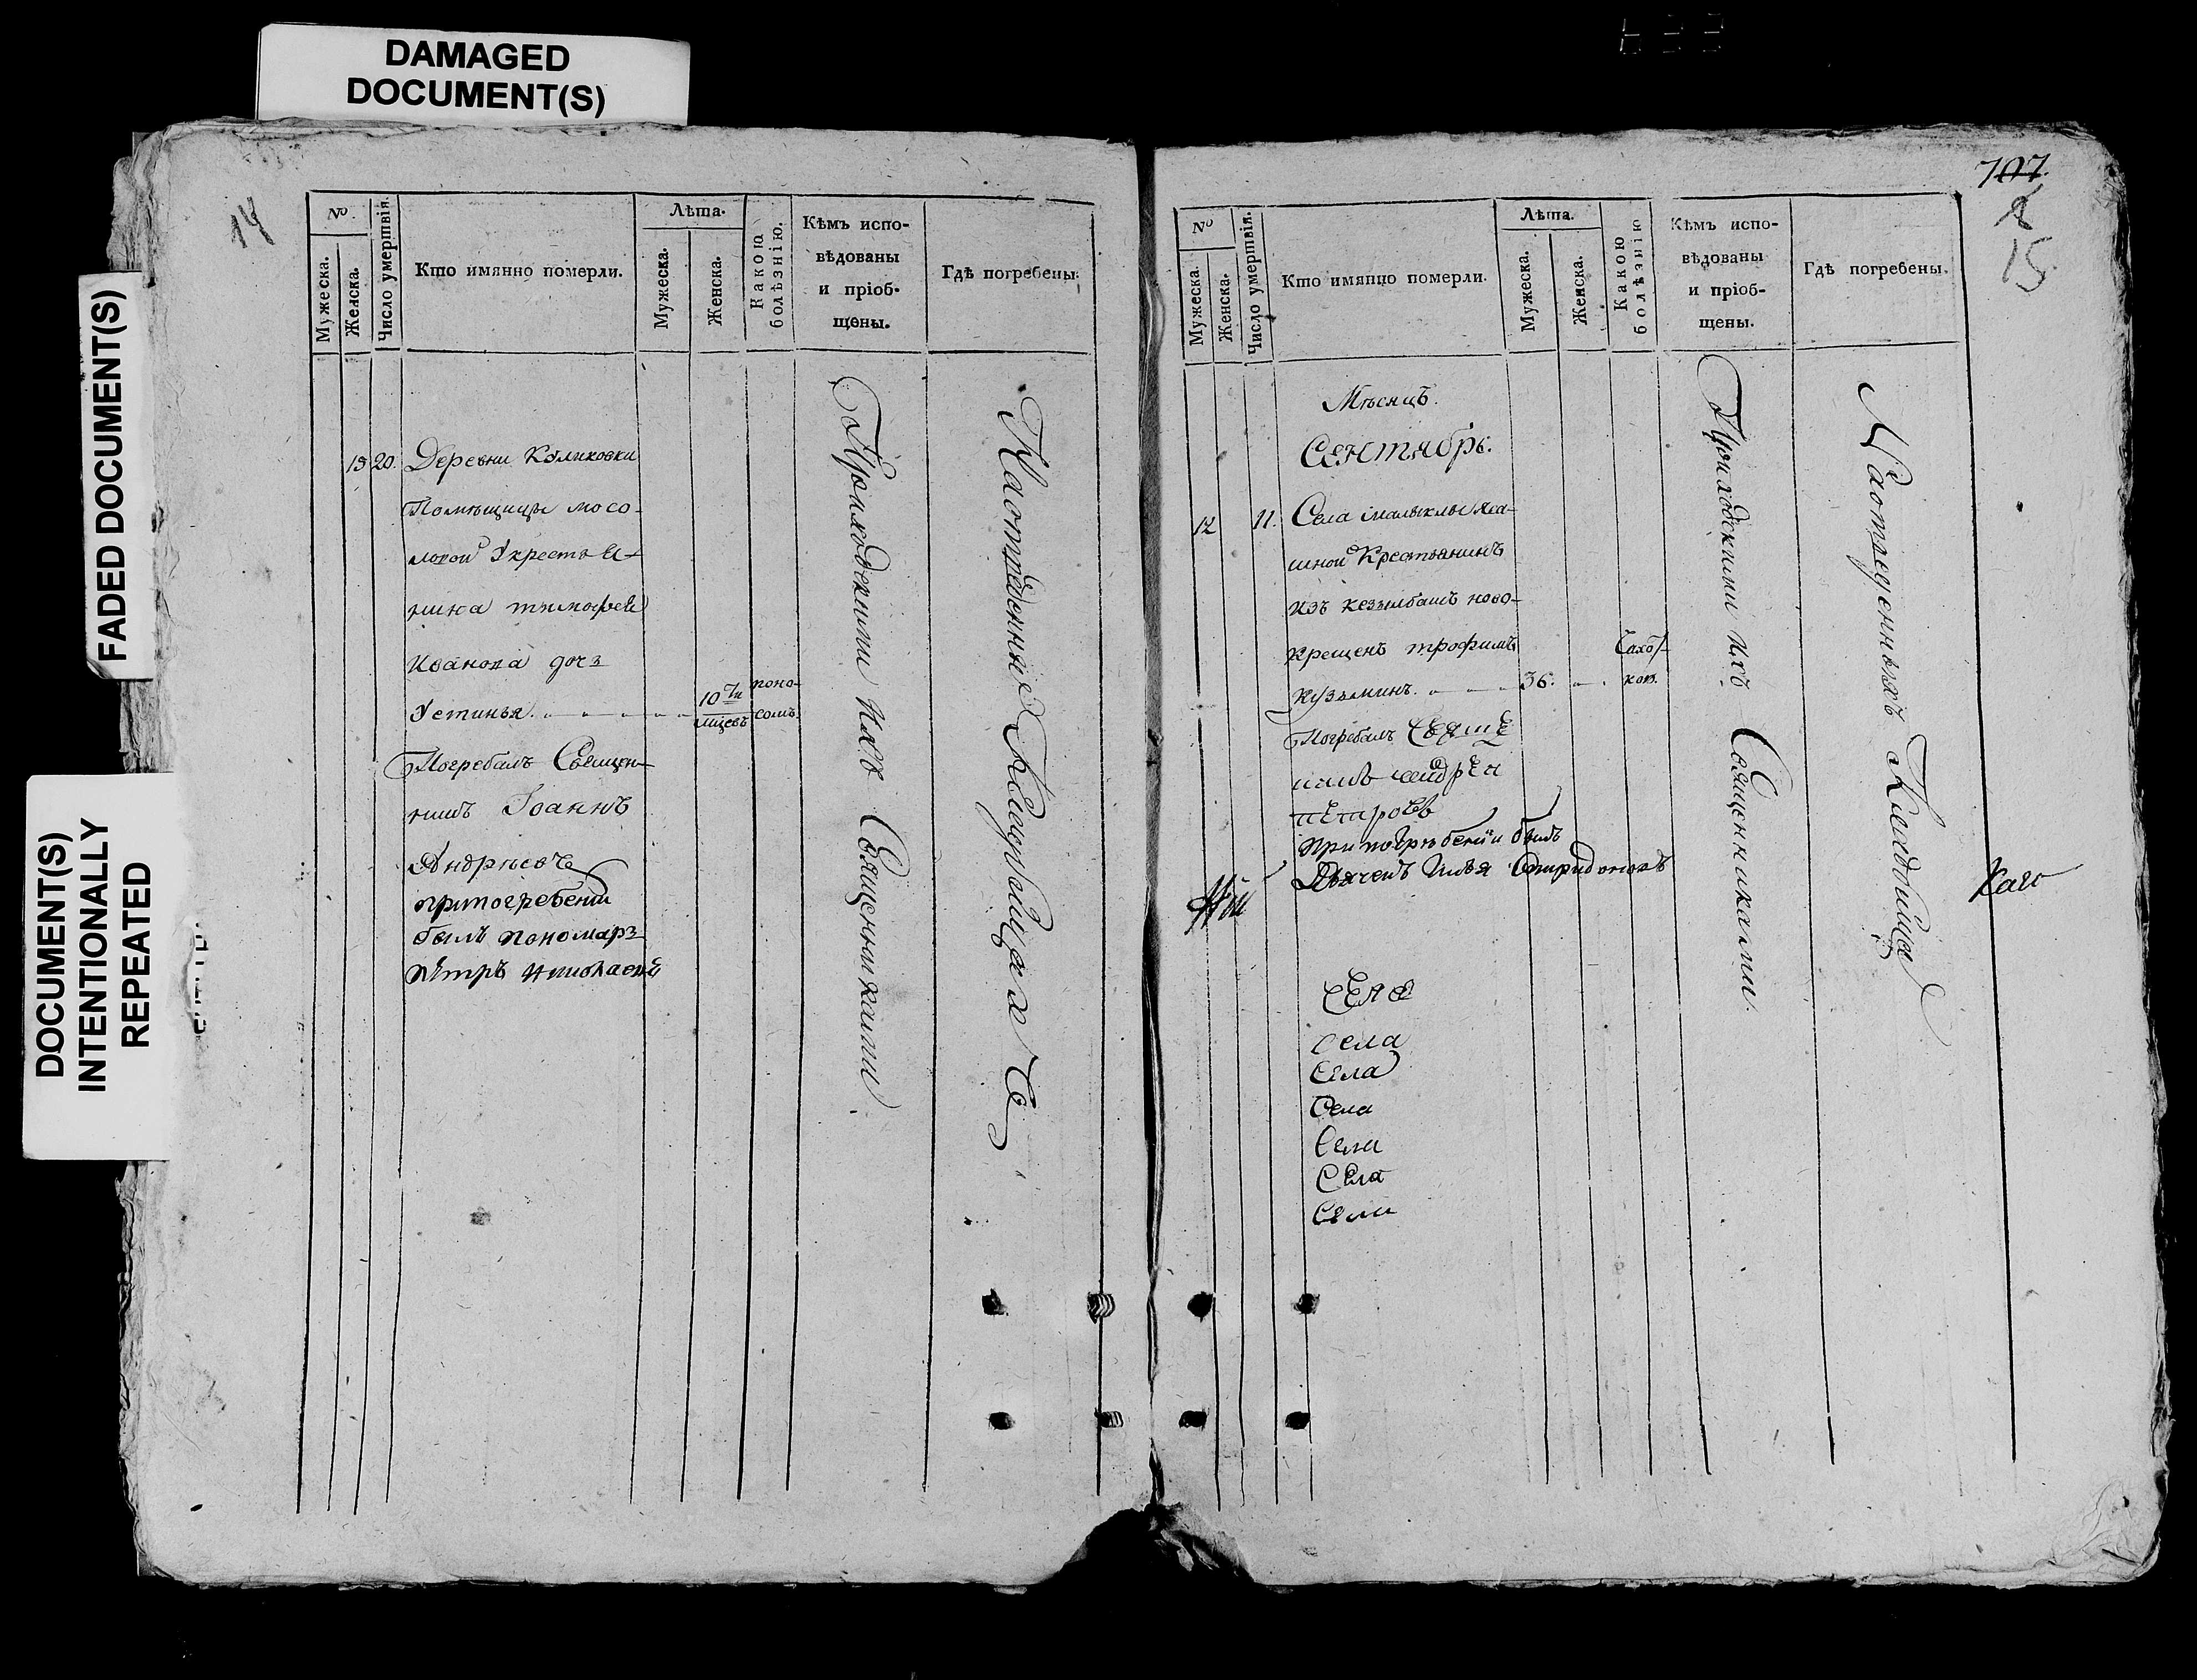 DAMAGED
DOCUMENT(S)
FADED DOCUMENT(S)
DOCUMENT(S)
INTENTIONALLY
REPEATED
14
№
Мужеска.
Женска.
Число умертвія.
Кто имянно померли.
Лѣта.
Мужеска.
Женска.
Какою болѣзнію.
Кѣмъ испо-
вѣдованы
и пріоб-
щены.
Гдѣ погребены.
15 20. Деревни Куликовки
Помѣщицы мосо-
ловой У крестья-
нина тимофея
Иванова дочь
Устинья. 10ти поно-
мцевъ сомъ.
Погребалъ Священ-
никъ Іоаннъ
Андрѣевъ
при погребении
былъ пономарь
Пётръ Николаевъ
Приходскими ихъ Священниками
На отведенныхъ Кладбищахъ
707
15
№
Мужеска.
Женска.
Число умертвія.
Кто имянно померли.
Лѣта.
Мужеска.
Женска.
Какою болѣзнію
Кѣмъ испо-
вѣдованы
и пріоб-
щены.
Гдѣ погребены.
Мѣсяцъ.
Сентябрь.
12 11. Села малыклы яса-
шной Крестьянинъ
изъ кезылбашъ ново-
крещенъ трофимъ
Кузьминъ. 36. Сахот
кою.
Погребалъ Свяще
никъ андрей
петровъ
При погрѣбении былъ
Дьячекъ Илья Спиридоновъ
Приходскими ихъ Священниками.
На отведенныхъ Кладбища
каго
Села
Села
Села
Села
Села
Села
Села